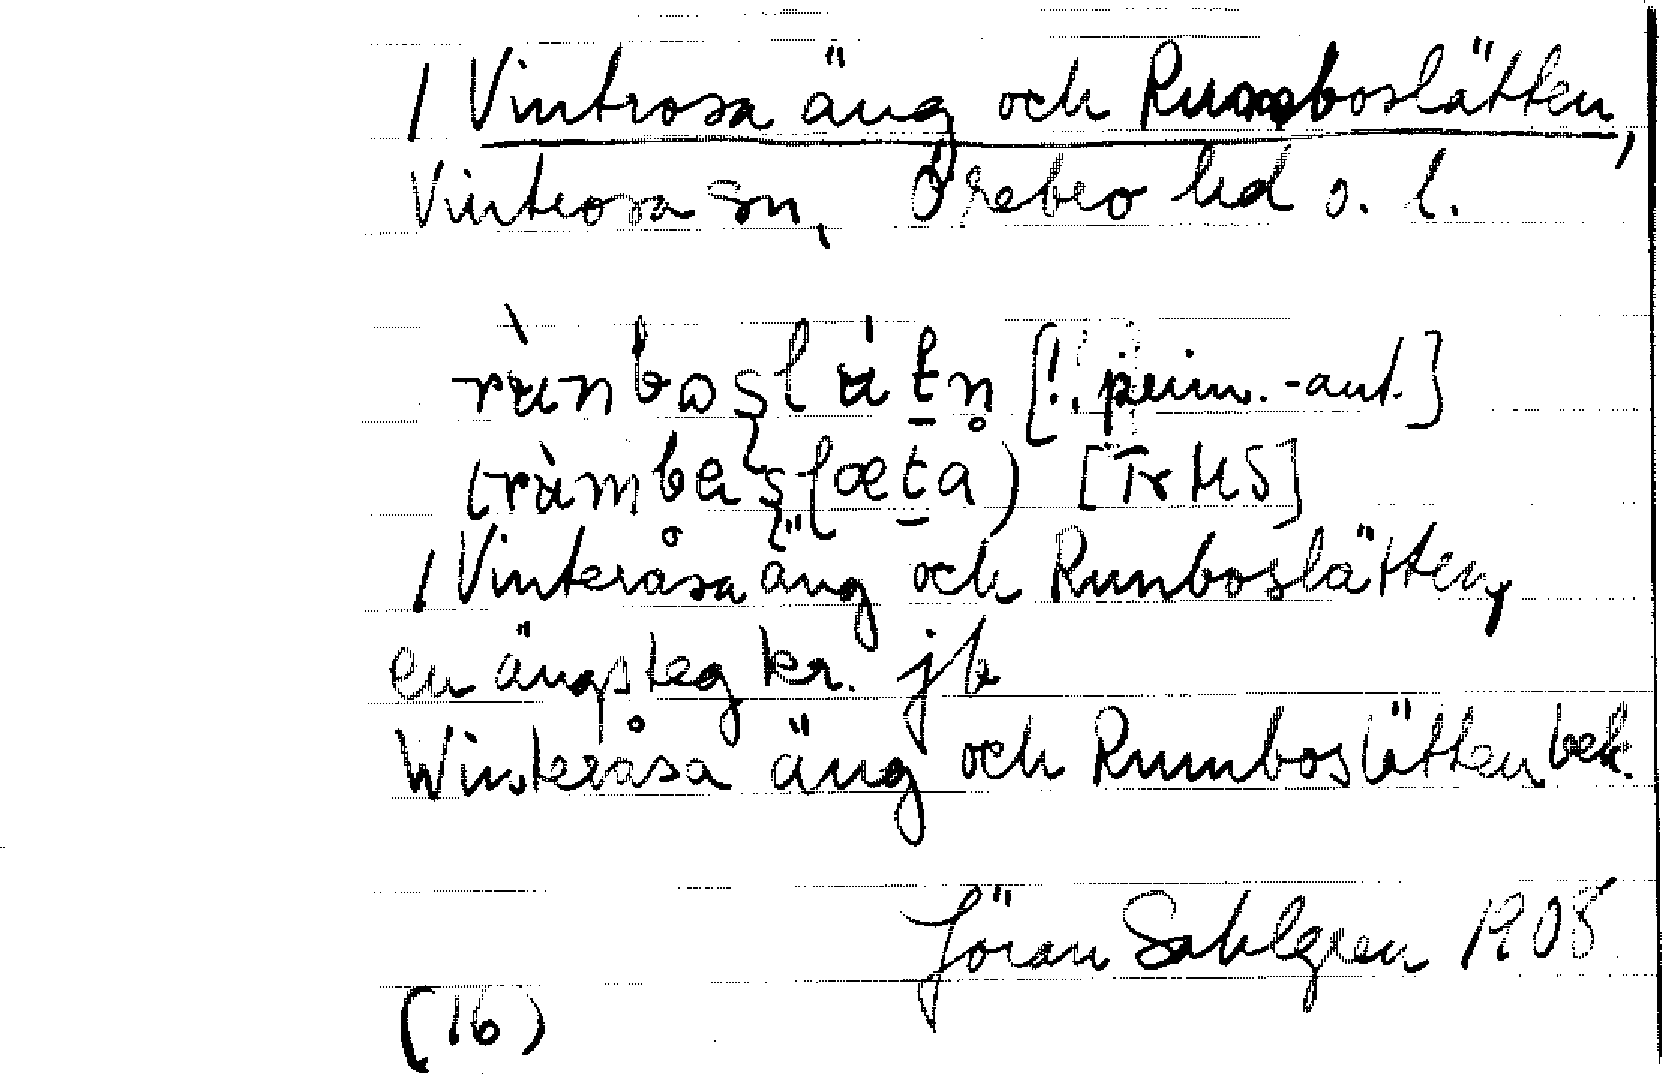 / Vintrosa äng och Rumboslätten,
Vintrosa sn, Örebro hd o. l.
rùnboslátn [!. prim.-ant.]
(ràmbeslæta) [Tr MS]
/ Vinteråsa äng och Runboslätten,
en ängsteg kr. jb
Winteråsa äng och Rumboslätten bek.
Jöran Sahlgren 1908
(16)